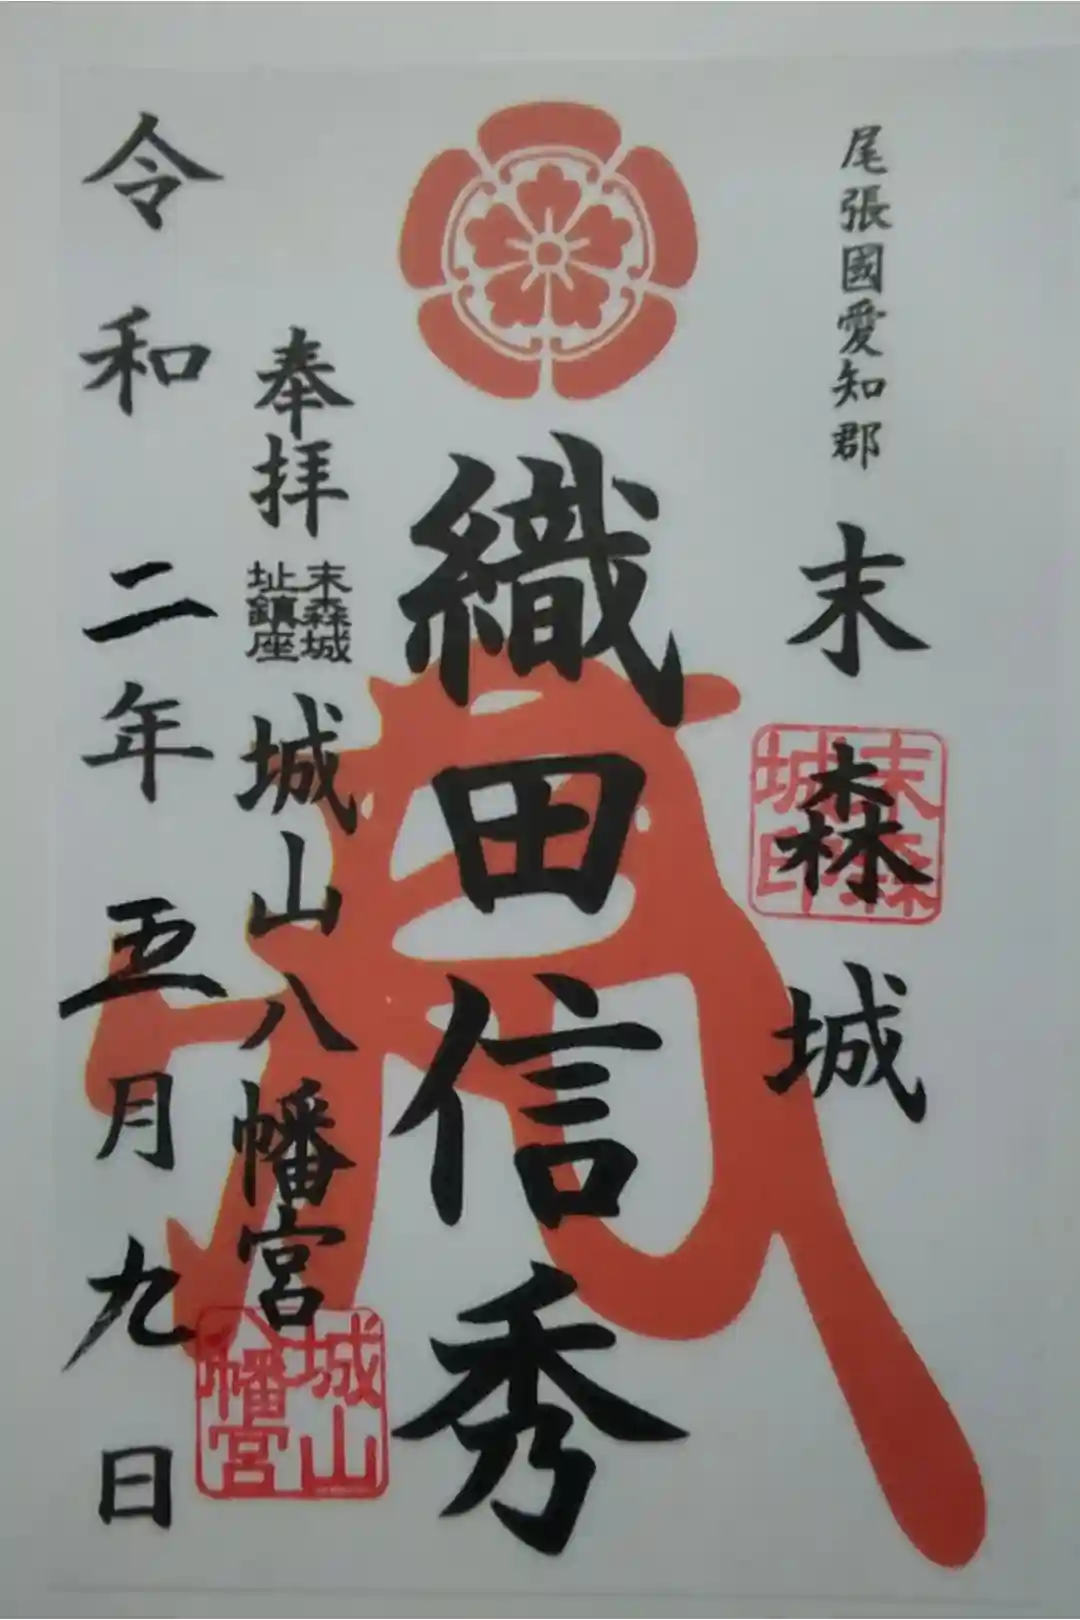 尾張國愛知郡
末森城
末森城印
織田信秀
奉拝
末森城
址鎮座
城山八幡宮
城山
八幡宮
令和二年五月九日